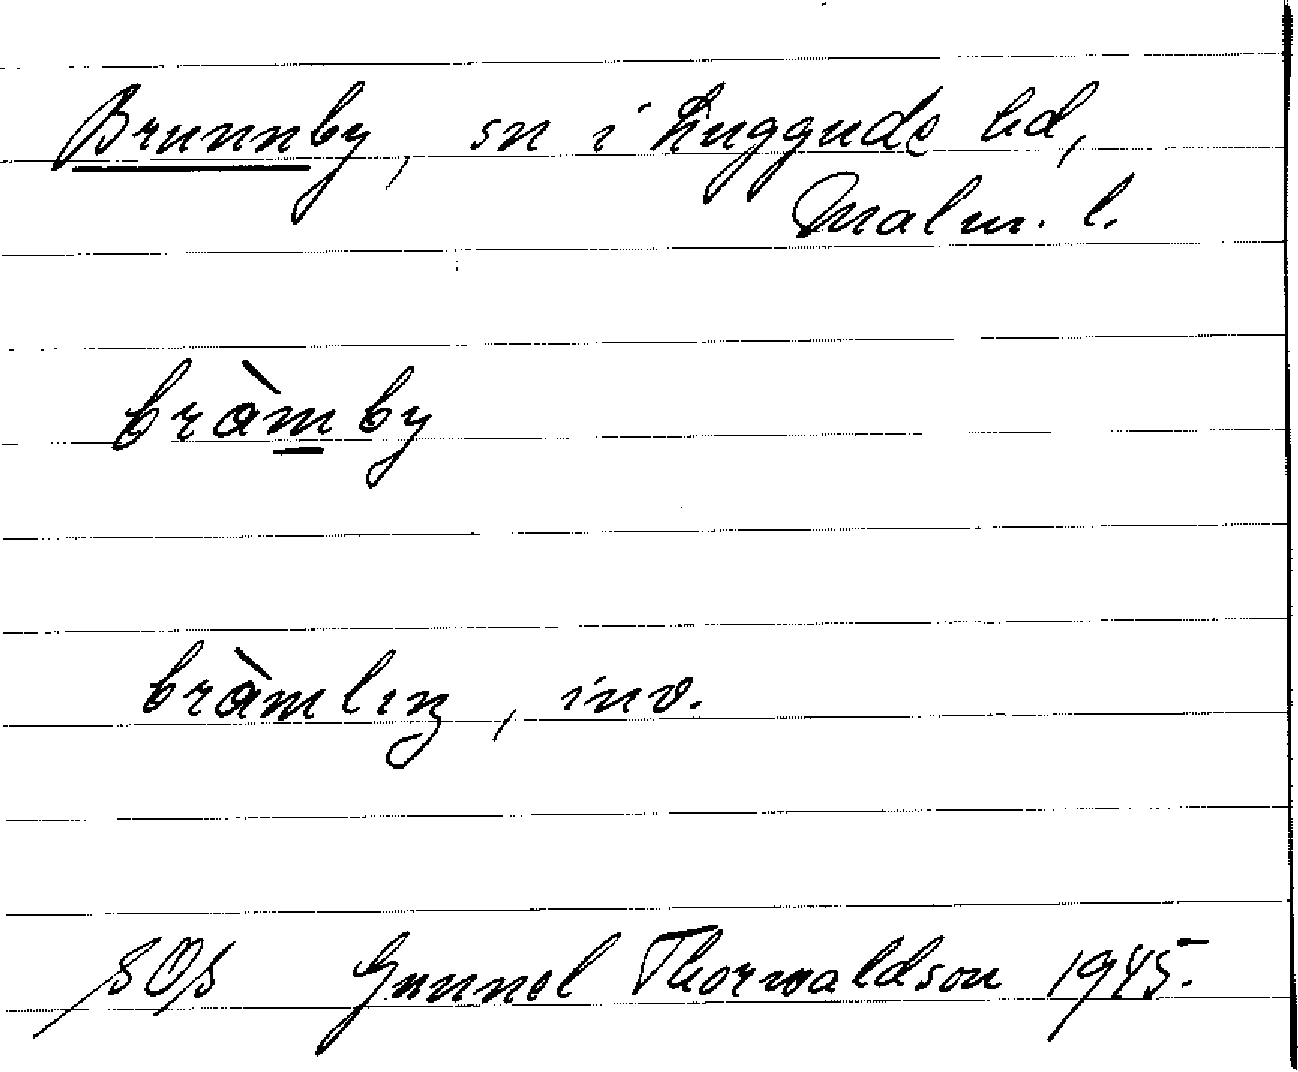 Brunnby, sn i Luggude hd,
Malm. l.
bràmby
bràmlıŋ, inv.
SOS Gunnel Thorwaldson 1945.